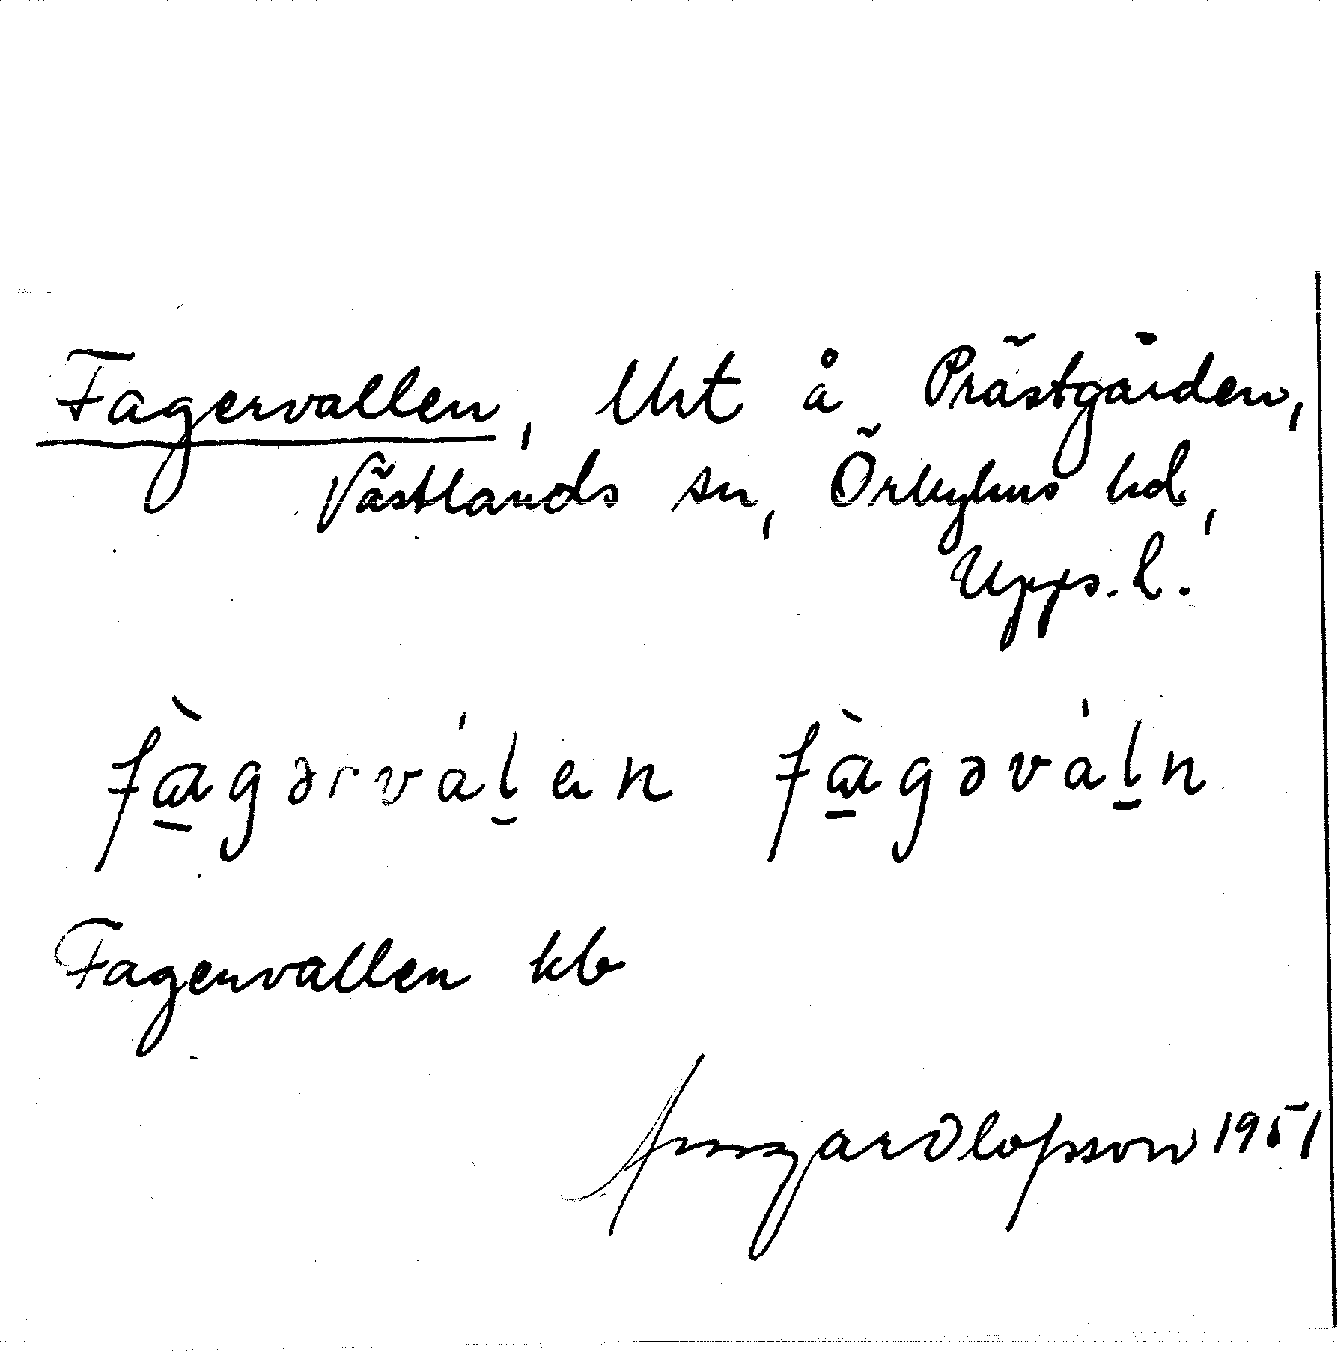 Fagervallen, Urt å Prästgården,
Västlands sn, Örbyhus hd,
Upps. l.
fàgərválen fàgəváln
Fagervallen kb
Olofsson 1951